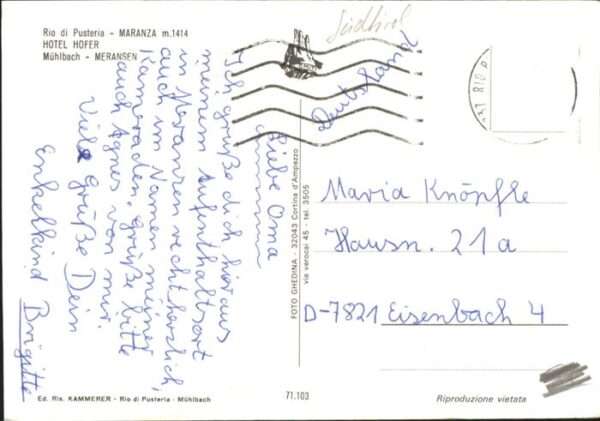 Rio di Pusteria - MARANZA m.1414
HOTEL HOFER
Mühlbach - MERANSEN
Südtirol
Deutschland
Liebe Oma
Ich grüße dich hieraus
meinem Aufenthaltsort
in Meranzen recht herzlich,
auch im Namen meiner
Kameraden. grüße bitte
auch Agnes von mir.
Viele grüße Dein
Enkelkind Brigitte
FOTO GHEDINA - 32043 Cortina d'Ampezzo
via verocai 45 - tel. 3505
Maria Knöpfle
Hausn. 21a
D-7821 Eisenbach 4
Ed. Ris. KAMMERER - Rio di Pusteria - Mühlbach
71.103
Riproduzione vietata